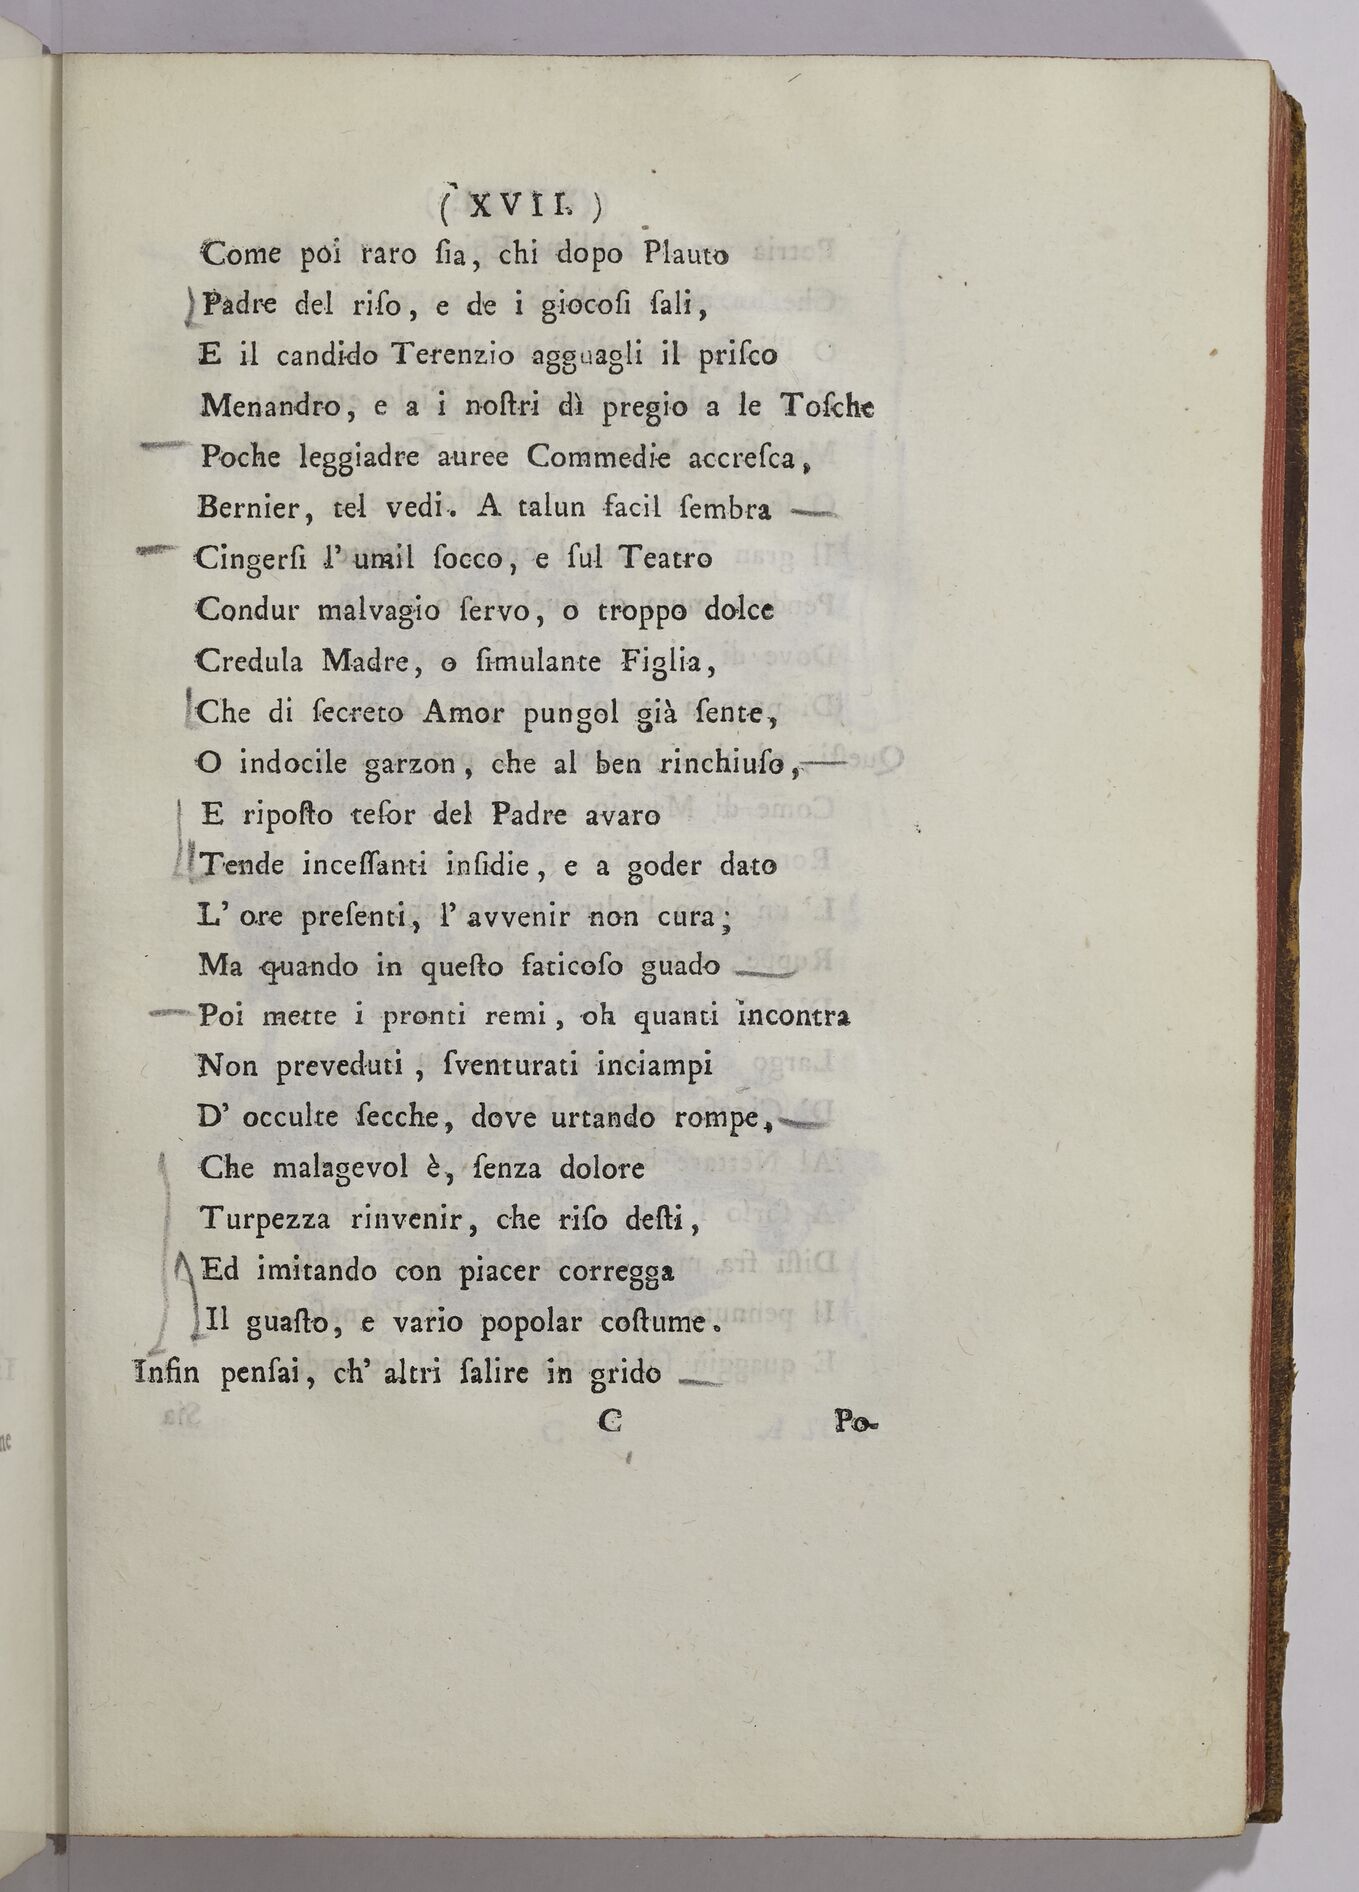 ( XVII. )
Come poi raro ſia, chi dopo Plauto
Padre del riſo, e de i giocoſi ſali,
E il candido Terenzio agguagli il priſco
Menandro, e a i noſtri dì pregio a le Toſche
Poche leggiadre auree Commedie accreſca,
Bernier, tel vedi. A talun facil ſembra
Cingerſi l' umil ſocco, e ſul Teatro
Condur malvagio ſervo, o troppo dolce
Credula Madre, o ſimulante Figlia,
Che di ſecreto Amor pungol già ſente,
O indocile garzon, che al ben rinchiuſo,
E ripoſto teſor del Padre avaro
Tende inceſſanti inſidie, e a goder dato
L' ore preſenti, l' avvenir non cura;
Ma quando in queſto faticoſo guado
Poi mette i pronti remi, oh quanti incontra
Non preveduti, ſventurati inciampi
D' occulte ſecche, dove urtando rompe,
Che malagevol è, ſenza dolore
Turpezza rinvenir, che riſo deſti,
Ed imitando con piacer corregga
Il guaſto, e vario popolar coſtume.
Infin penſai, ch' altri ſalire in grido
C Po-